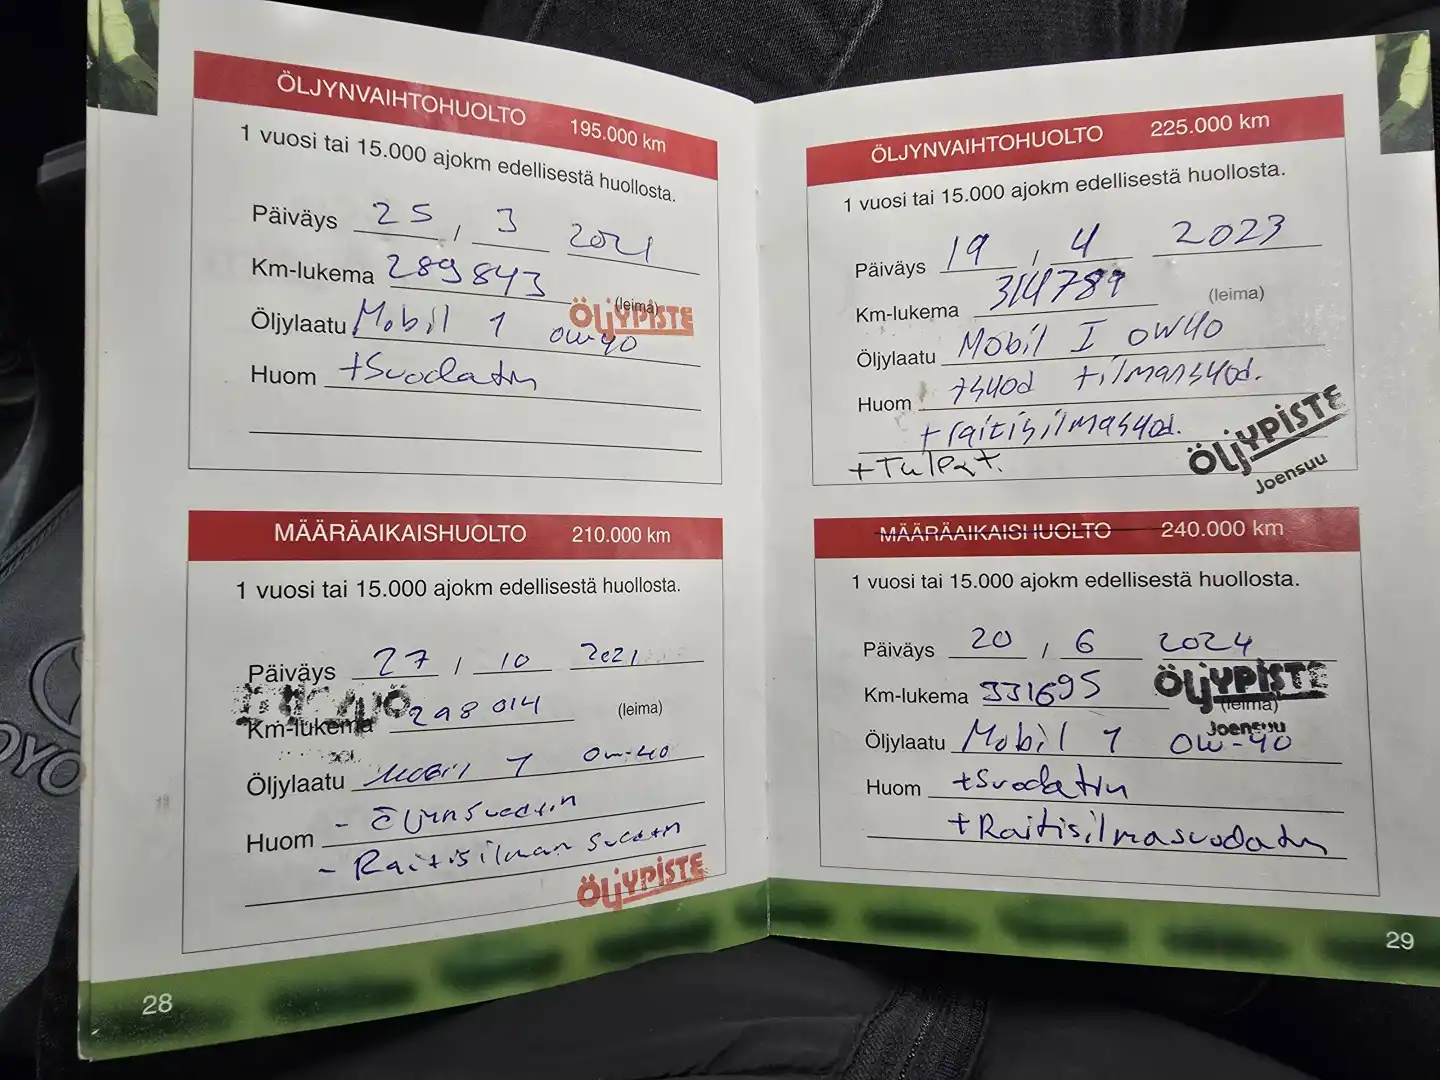 ÖLJYNVAIHTOHUOLTO 195.000 km
1 vuosi tai 15.000 ajokm edellisestä huollosta.
Päiväys 25 / 3 2021
Km-lukema 289843
(leima)
ÖLJYPISTE
Öljylaatu Mobil 1 0w-40
Huom +Suodatin
MÄÄRÄAIKAISHUOLTO 210.000 km
1 vuosi tai 15.000 ajokm edellisestä huollosta.
Päiväys 27 / 10 2021
Km-lukema 298014 (leima)
Öljylaatu Mobil 1 0w-40
Huom - Öljynsuodatin
- Raitisilman suodatin
ÖLJYPISTE
28
ÖLJYNVAIHTOHUOLTO 225.000 km
1 vuosi tai 15.000 ajokm edellisestä huollosta.
Päiväys 19 / 4 2023
Km-lukema 314789 (leima)
Öljylaatu Mobil I 0W40
Huom +suod +ilmansuod.
+raitisilmasuod.
+Tulpat.
ÖLJYPISTE
Joensuu
MÄÄRÄAIKAISHUOLTO 240.000 km
1 vuosi tai 15.000 ajokm edellisestä huollosta.
Päiväys 20 / 6 2024
Km-lukema 331695
ÖLJYPISTE
(leima)
Joensuu
Öljylaatu Mobil 1 0W-40
Huom +Suodatin
+Raitisilmasuodatin
29